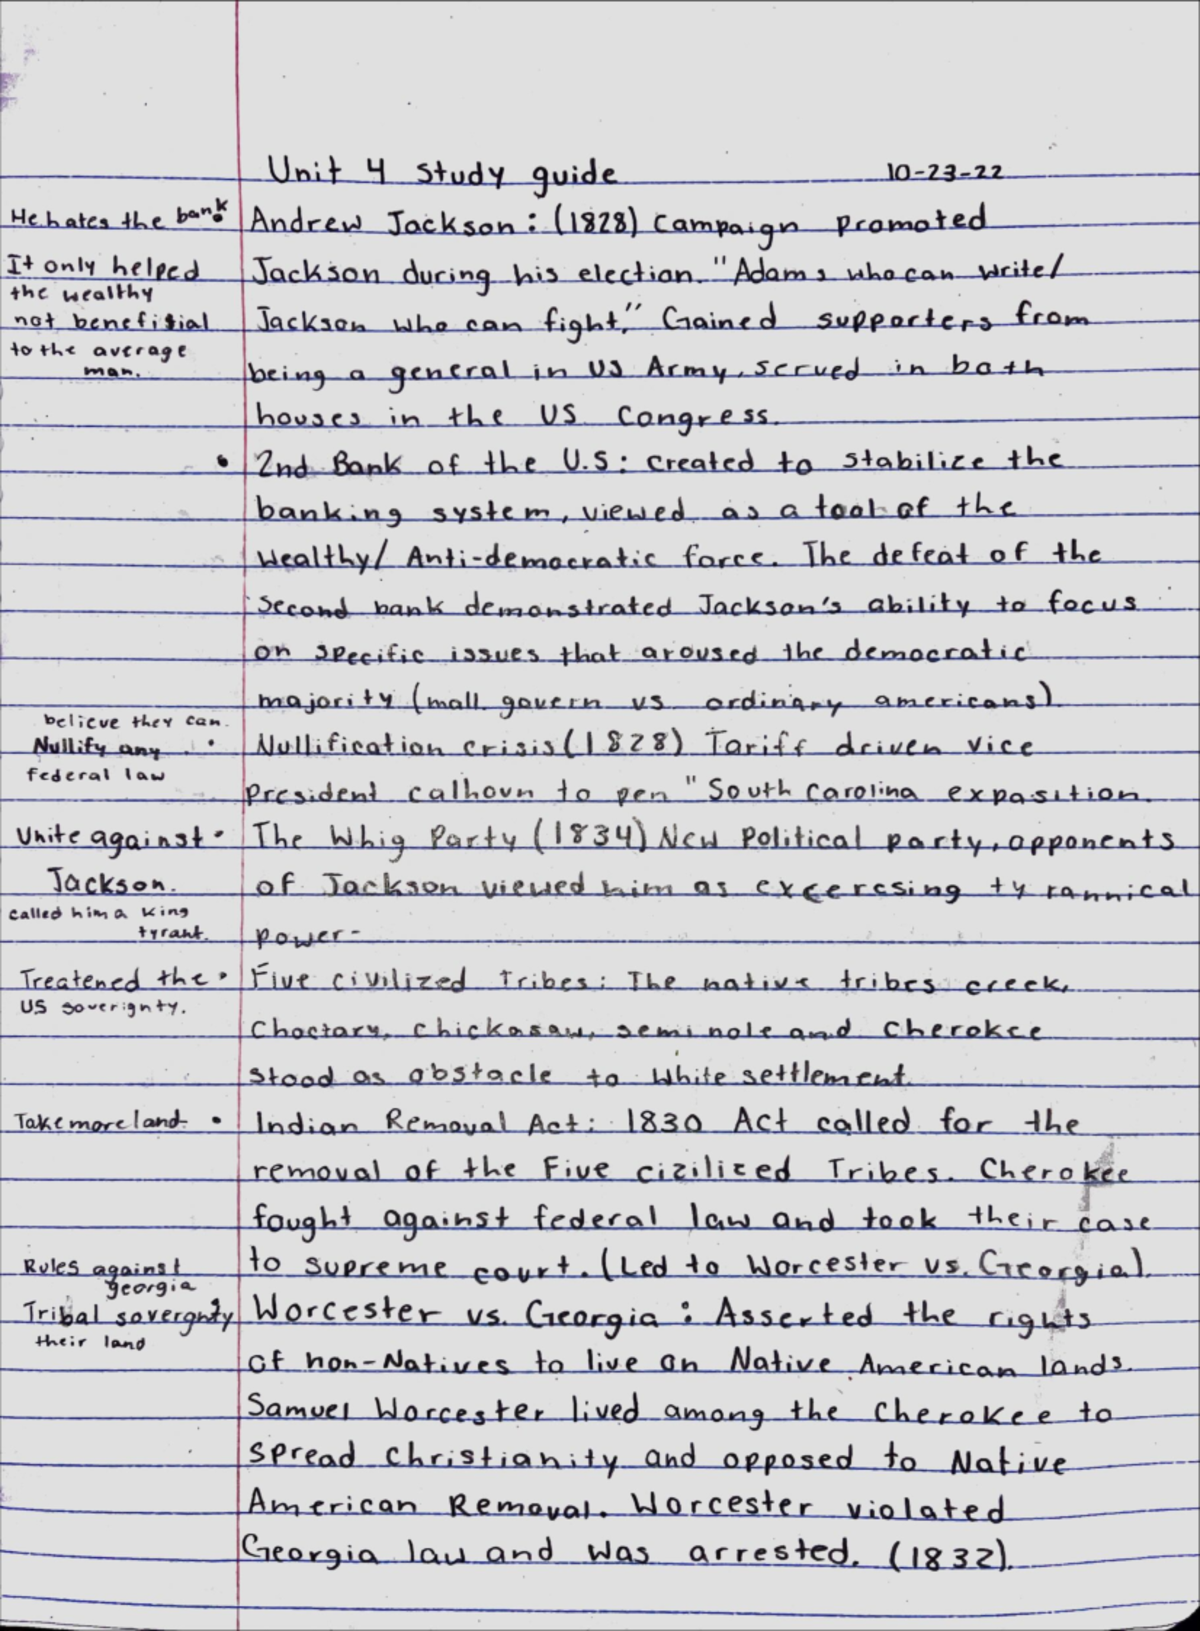 Unit 4 study guide 10-23-22
He hates the bank.
Andrew Jackson: (1828) campaign promoted
It only helped
the wealthy
Jackson during his election. "Adams who can write/
not benefitial
Jackson who can fight." Gained supporters from
to the average
man.
being a general in US Army, served in both
houses in the US Congress.
• 2nd Bank of the U.S: created to stabilize the
banking system, viewed as a tool of the
Wealthy/ Anti-democratic force. The defeat of the
second bank demonstrated Jackson's ability to focus
on specific issues that aroused the democratic
majority (mall. govern vs ordinary americans)
believe they can
Nullify any
federal law
• Nullification crisis (1828) Tariff driven vice
President calhoun to pen "South carolina exposition.
Unite against
Jackson.
called him a king
tyrant.
• The Whig Party (1834) New Political party, opponents
of Jackson viewed him as excercsing tyrannical
power-
Treatened the
US soverignty.
• Five civilized Tribes: The native tribes creek,
Choctary, chickasaw, seminole and cherokee
stood as obstacle to white settlement.
Take more land
• Indian Removal Act: 1830 Act called for the
removal of the Five cizilized Tribes. Cherokee
fought against federal law and took their case
to supreme court. (Led to Worcester vs. Georgia).
Rules against
georgia
Tribal sovergnty
their land
Worcester vs. Georgia: Asserted the rights
of non-Natives to live on Native American lands.
Samuel Worcester lived among the Cherokee to
spread christianity and opposed to Native
American Removal. Worcester violated
Georgia law and was arrested. (1832).